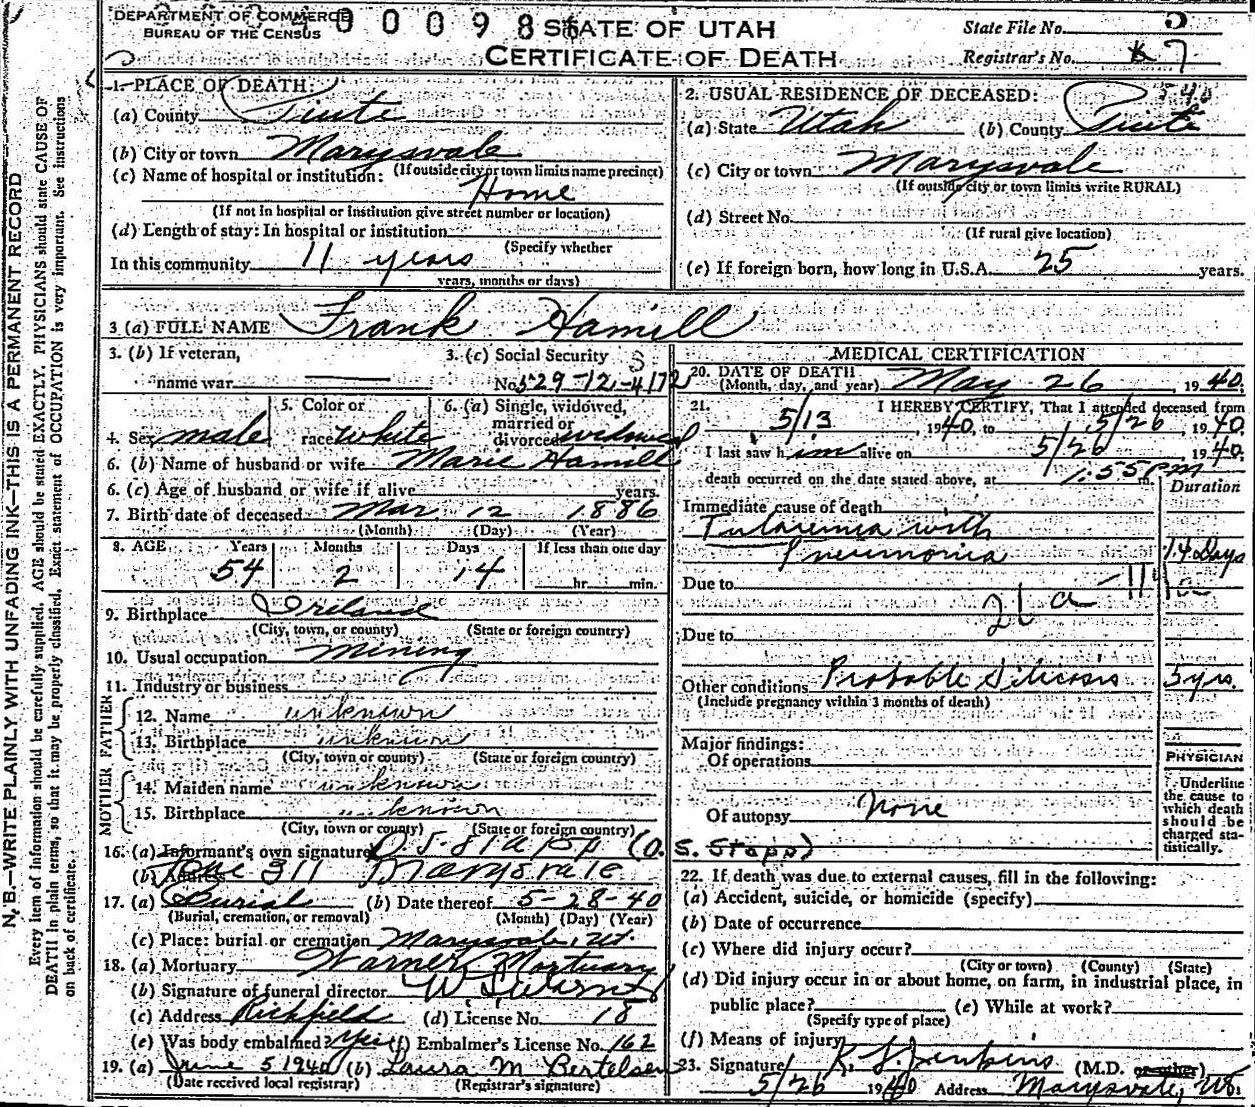 DEPARTMENT OF COMMERCE
BUREAU OF THE CENSUS
0 0 0 9 8
STATE OF UTAH
CERTIFICATE OF DEATH
State File No. 5
Registrar's No. 7
1. PLACE OF DEATH:
(a) County Piute
(b) City or town Marysvale
(If outside city or town limits name precinct)
(c) Name of hospital or institution:
Home
(If not in hospital or institution give street number or location)
(d) Length of stay: In hospital or institution
(Specify whether
In this community 11 years
years, months or days)
2. USUAL RESIDENCE OF DECEASED:
(a) State Utah (b) County Piute
(c) City or town Marysvale
(If outside city or town limits write RURAL)
(d) Street No.
(If rural give location)
(e) If foreign born, how long in U.S.A. 25 years.
3 (a) FULL NAME Frank Hamill
3. (b) If veteran,
name war
3. (c) Social Security
No. 529-12-4172
4. Sex male
5. Color or
race White
6. (a) Single, widowed,
married or
divorced widowed
6. (b) Name of husband or wife Marie Hamill
6. (c) Age of husband or wife if alive years.
7. Birth date of deceased Mar. 12 1886
(Month) (Day) (Year)
8. AGE Years Months Days If less than one day
54 2 14 hr. min.
9. Birthplace Ireland
(City, town, or county) (State or foreign country)
10. Usual occupation Mining
11. Industry or business
FATHER
12. Name unknown
13. Birthplace unknown
(City, town or county) (State or foreign country)
MOTHER
14. Maiden name unknown
15. Birthplace unknown
(City, town or county) (State or foreign country)
16. (a) Informant's own signature O. S. Stapp (O. S. Stapp)
(b) Address 311 Marysvale
17. (a) Burial (b) Date thereof 5-28-40
(Burial, cremation, or removal) (Month) (Day) (Year)
(c) Place: burial or cremation Marysvale, Ut.
18. (a) Mortuary Warner Mortuary
(b) Signature of funeral director
(c) Address Richfield (d) License No. 18
(e) Was body embalmed? Yes (f) Embalmer's License No. 162
19. (a) June 5 1940 (b) Laura M Bertelsen
(Date received local registrar) (Registrar's signature)
MEDICAL CERTIFICATION
20. DATE OF DEATH
(Month, day, and year) May 26, 1940.
21. I HEREBY CERTIFY, That I attended deceased from
5/13, 1940, to 5/26, 1940.
I last saw him alive on 5/26, 1940.
death occurred on the date stated above, at 1:55 PM m.
Duration
Immediate cause of death
Tularemia with
Pneumonia 14 Days
Due to
21 a
Due to
Other conditions Probable Silicosis 5 yrs.
(Include pregnancy within 3 months of death)
Major findings:
Of operations
Of autopsy None
PHYSICIAN
Underline
the cause to
which death
should be
charged sta-
tistically.
22. If death was due to external causes, fill in the following:
(a) Accident, suicide, or homicide (specify)
(b) Date of occurrence
(c) Where did injury occur?
(City or town) (County) (State)
(d) Did injury occur in or about home, on farm, in industrial place, in
public place? (e) While at work?
(Specify type of place)
(f) Means of injury
23. Signature R. S. Jenkins (M.D. or other)
5/26 1940 Address Marysvale, Ut.
N.B.—WRITE PLAINLY WITH UNFADING INK—THIS IS A PERMANENT RECORD
Every item of information should be carefully supplied. AGE should be stated EXACTLY. PHYSICIANS should state CAUSE OF
DEATH in plain terms, so that it may be properly classified. Exact statement of OCCUPATION is very important. See instructions
on back of certificate.